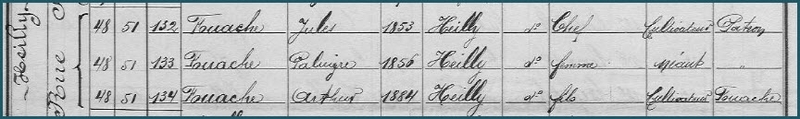 Heilly
Rue
48 51 132 Fouache Jules 1853 Heilly do Chef Cultivateur Patron
48 51 133 Fouache Palmire 1856 Heilly do femme néant "
48 51 134 Fouache Arthur 1884 Heilly do fils Cultivateur Fouache